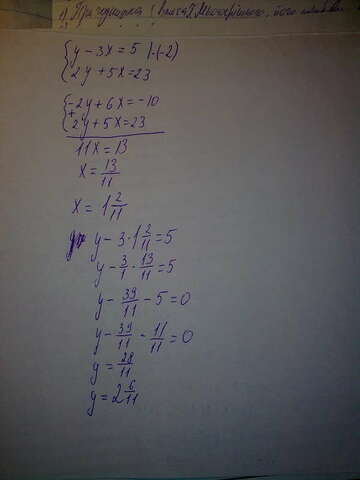 { y - 3x = 5 | · (-2)
{ 2y + 5x = 23
{ -2y + 6x = -10
+ 2y + 5x = 23
11x = 13
x = 13/11
x = 1 2/11
y - 3 · 1 2/11 = 5
y - 3/1 · 13/11 = 5
y - 39/11 - 5 = 0
y - 39/11 - 11/11 = 0
y = 28/11
y = 2 6/11